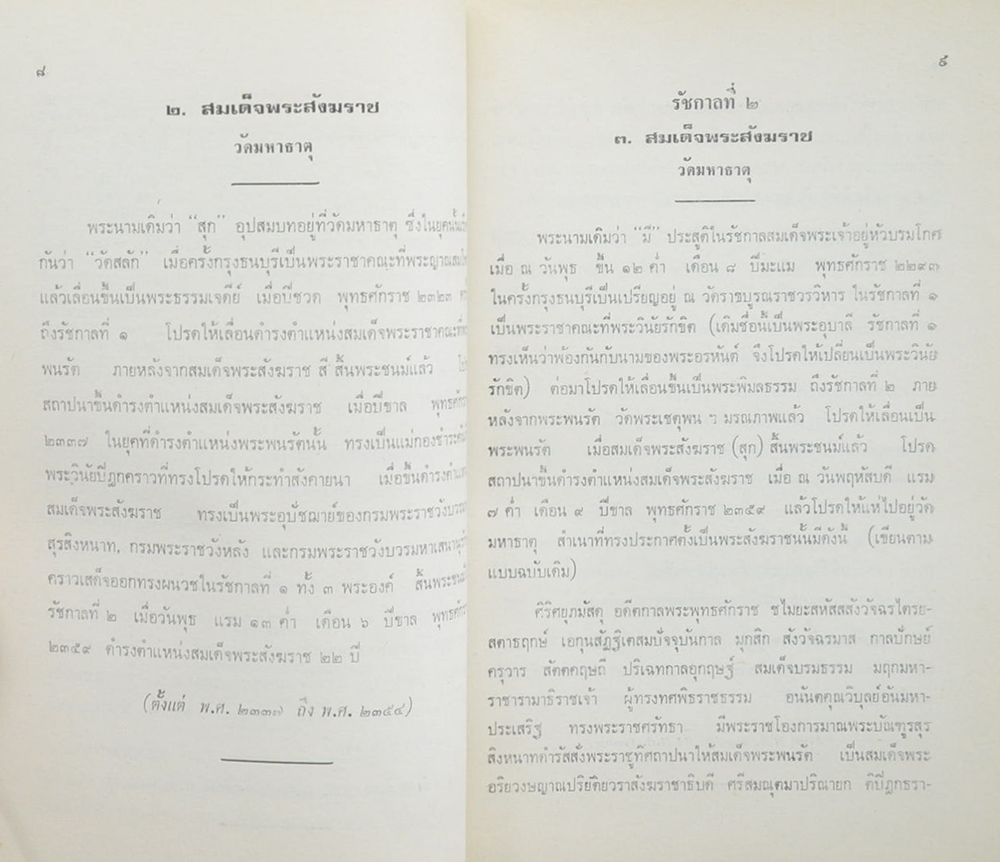 ๘
๒. สมเด็จพระสังฆราช
วัดมหาธาตุ
พระนามเดิมว่า “สุก” อุปสมบทอยู่ที่วัดมหาธาตุ ซึ่งในยุคนั้น
กันว่า “วัดสลัก” เมื่อครั้งกรุงธนบุรีเป็นพระราชาคณะที่พระญาณ
แล้วเลื่อนขึ้นเป็นพระธรรมเจดีย์ เมื่อปีชวด พุทธศักราช ๒๓๒๓
ถึงรัชกาลที่ ๑ โปรดให้เลื่อนดำรงตำแหน่งสมเด็จพระราชาคณะที่
พนรัต ภายหลังจากสมเด็จพระสังฆราช สี สิ้นพระชนม์แล้ว
สถาปนาขึ้นดำรงตำแหน่งสมเด็จพระสังฆราช เมื่อปีขาล
๒๓๓๗ ในยุคที่ดำรงตำแหน่งพระพนรัตนั้น ทรงเป็นแม่กองชำระ
พระวินัยปิฎกคราวที่ทรงโปรดให้กระทำสังคายนา เมื่อขึ้นดำรง
สมเด็จพระสังฆราช ทรงเป็นพระอุปัชฌาย์ของกรมพระราชวังบวร
สุรสิงหนาท, กรมพระราชวังหลัง และกรมพระราชวังบวรมหาเสนานุรักษ์
คราวเสด็จออกทรงผนวชในรัชกาลที่ ๑ ทั้ง ๓ พระองค์ สิ้นพระชนม์
รัชกาลที่ ๒ เมื่อวันพุธ แรม ๑๓ ค่ำ เดือน ๖ ปีขาล
๒๓๕๙ ดำรงตำแหน่งสมเด็จพระสังฆราช ๒๒ ปี
(ตั้งแต่ พ.ศ. ๒๓๓๗ ถึง พ.ศ. ๒๓๕๙)
๙
รัชกาลที่ ๒
๓. สมเด็จพระสังฆราช
วัดมหาธาตุ
พระนามเดิมว่า “มี” ประสูติในรัชกาลสมเด็จพระเจ้าอยู่หัวบรมโกศ
เมื่อ ณ วันพุธ ขึ้น ๑๒ ค่ำ เดือน ๘ ปีมะแม พุทธศักราช ๒๒๙๓
ในครั้งกรุงธนบุรีเป็นเปรียญอยู่ ณ วัดราชบูรณราชวรวิหาร ในรัชกาลที่ ๑
เป็นพระราชาคณะที่พระวินัยรักขิต (เดิมชื่อนี้เป็นพระอุบาลี รัชกาลที่ ๑
ทรงเห็นว่าพ้องกันกับนามของพระอรหันต์ จึงโปรดให้เปลี่ยนเป็นพระวินัย
รักขิต) ต่อมาโปรดให้เลื่อนขึ้นเป็นพระพิมลธรรม ถึงรัชกาลที่ ๒ ภาย
หลังจากพระพนรัต วัดพระเชตุพน ฯ มรณภาพแล้ว โปรดให้เลื่อนเป็น
พระพนรัต เมื่อสมเด็จพระสังฆราช (สุก) สิ้นพระชนม์แล้ว โปรด
สถาปนาขึ้นดำรงตำแหน่งสมเด็จพระสังฆราช เมื่อ ณ วันพฤหัสบดี แรม
๗ ค่ำ เดือน ๙ ปีขาล พุทธศักราช ๒๓๕๙ แล้วโปรดให้แห่ไปอยู่วัด
มหาธาตุ สำเนาที่ทรงประกาศตั้งเป็นพระสังฆราชนั้นมีดังนี้ (เขียนตาม
แบบฉบับเดิม)
ศิริศยุภมัสดุ อดีตกาลพระพุทธศักราช ชไมยะสหัสสสังวัจฉรไตรย-
สตาธฤกษ์ เอกุนสัฏฐิเตสมปัจจุบันกาล มุกสิก สังวัจฉรมาส กาลปักษย์
ครุวาร สัตตคฤษถี ปริเฉทกาลอุกฤษฐ์ สมเด็จบรมธรรม มฤกมหา-
ราชารามาธิราชเจ้า ผู้ทรงทศพิธราชธรรม อนันตคุณวิบุลย์อันมหา-
ประเสริฐ ทรงพระราชศรัทธา มีพระราชโองการมาณพระบัณฑูรสุร
สิงหนาทดำรัสสั่งพระราชูทิศถาปนาให้สมเด็จพระพนรัต เป็นสมเด็จพระ
อริยวงษญาณปริยัติยวราสังฆราชาธิบดี ศรีสมณุตมาปริณายก ติปิฎกธรา-